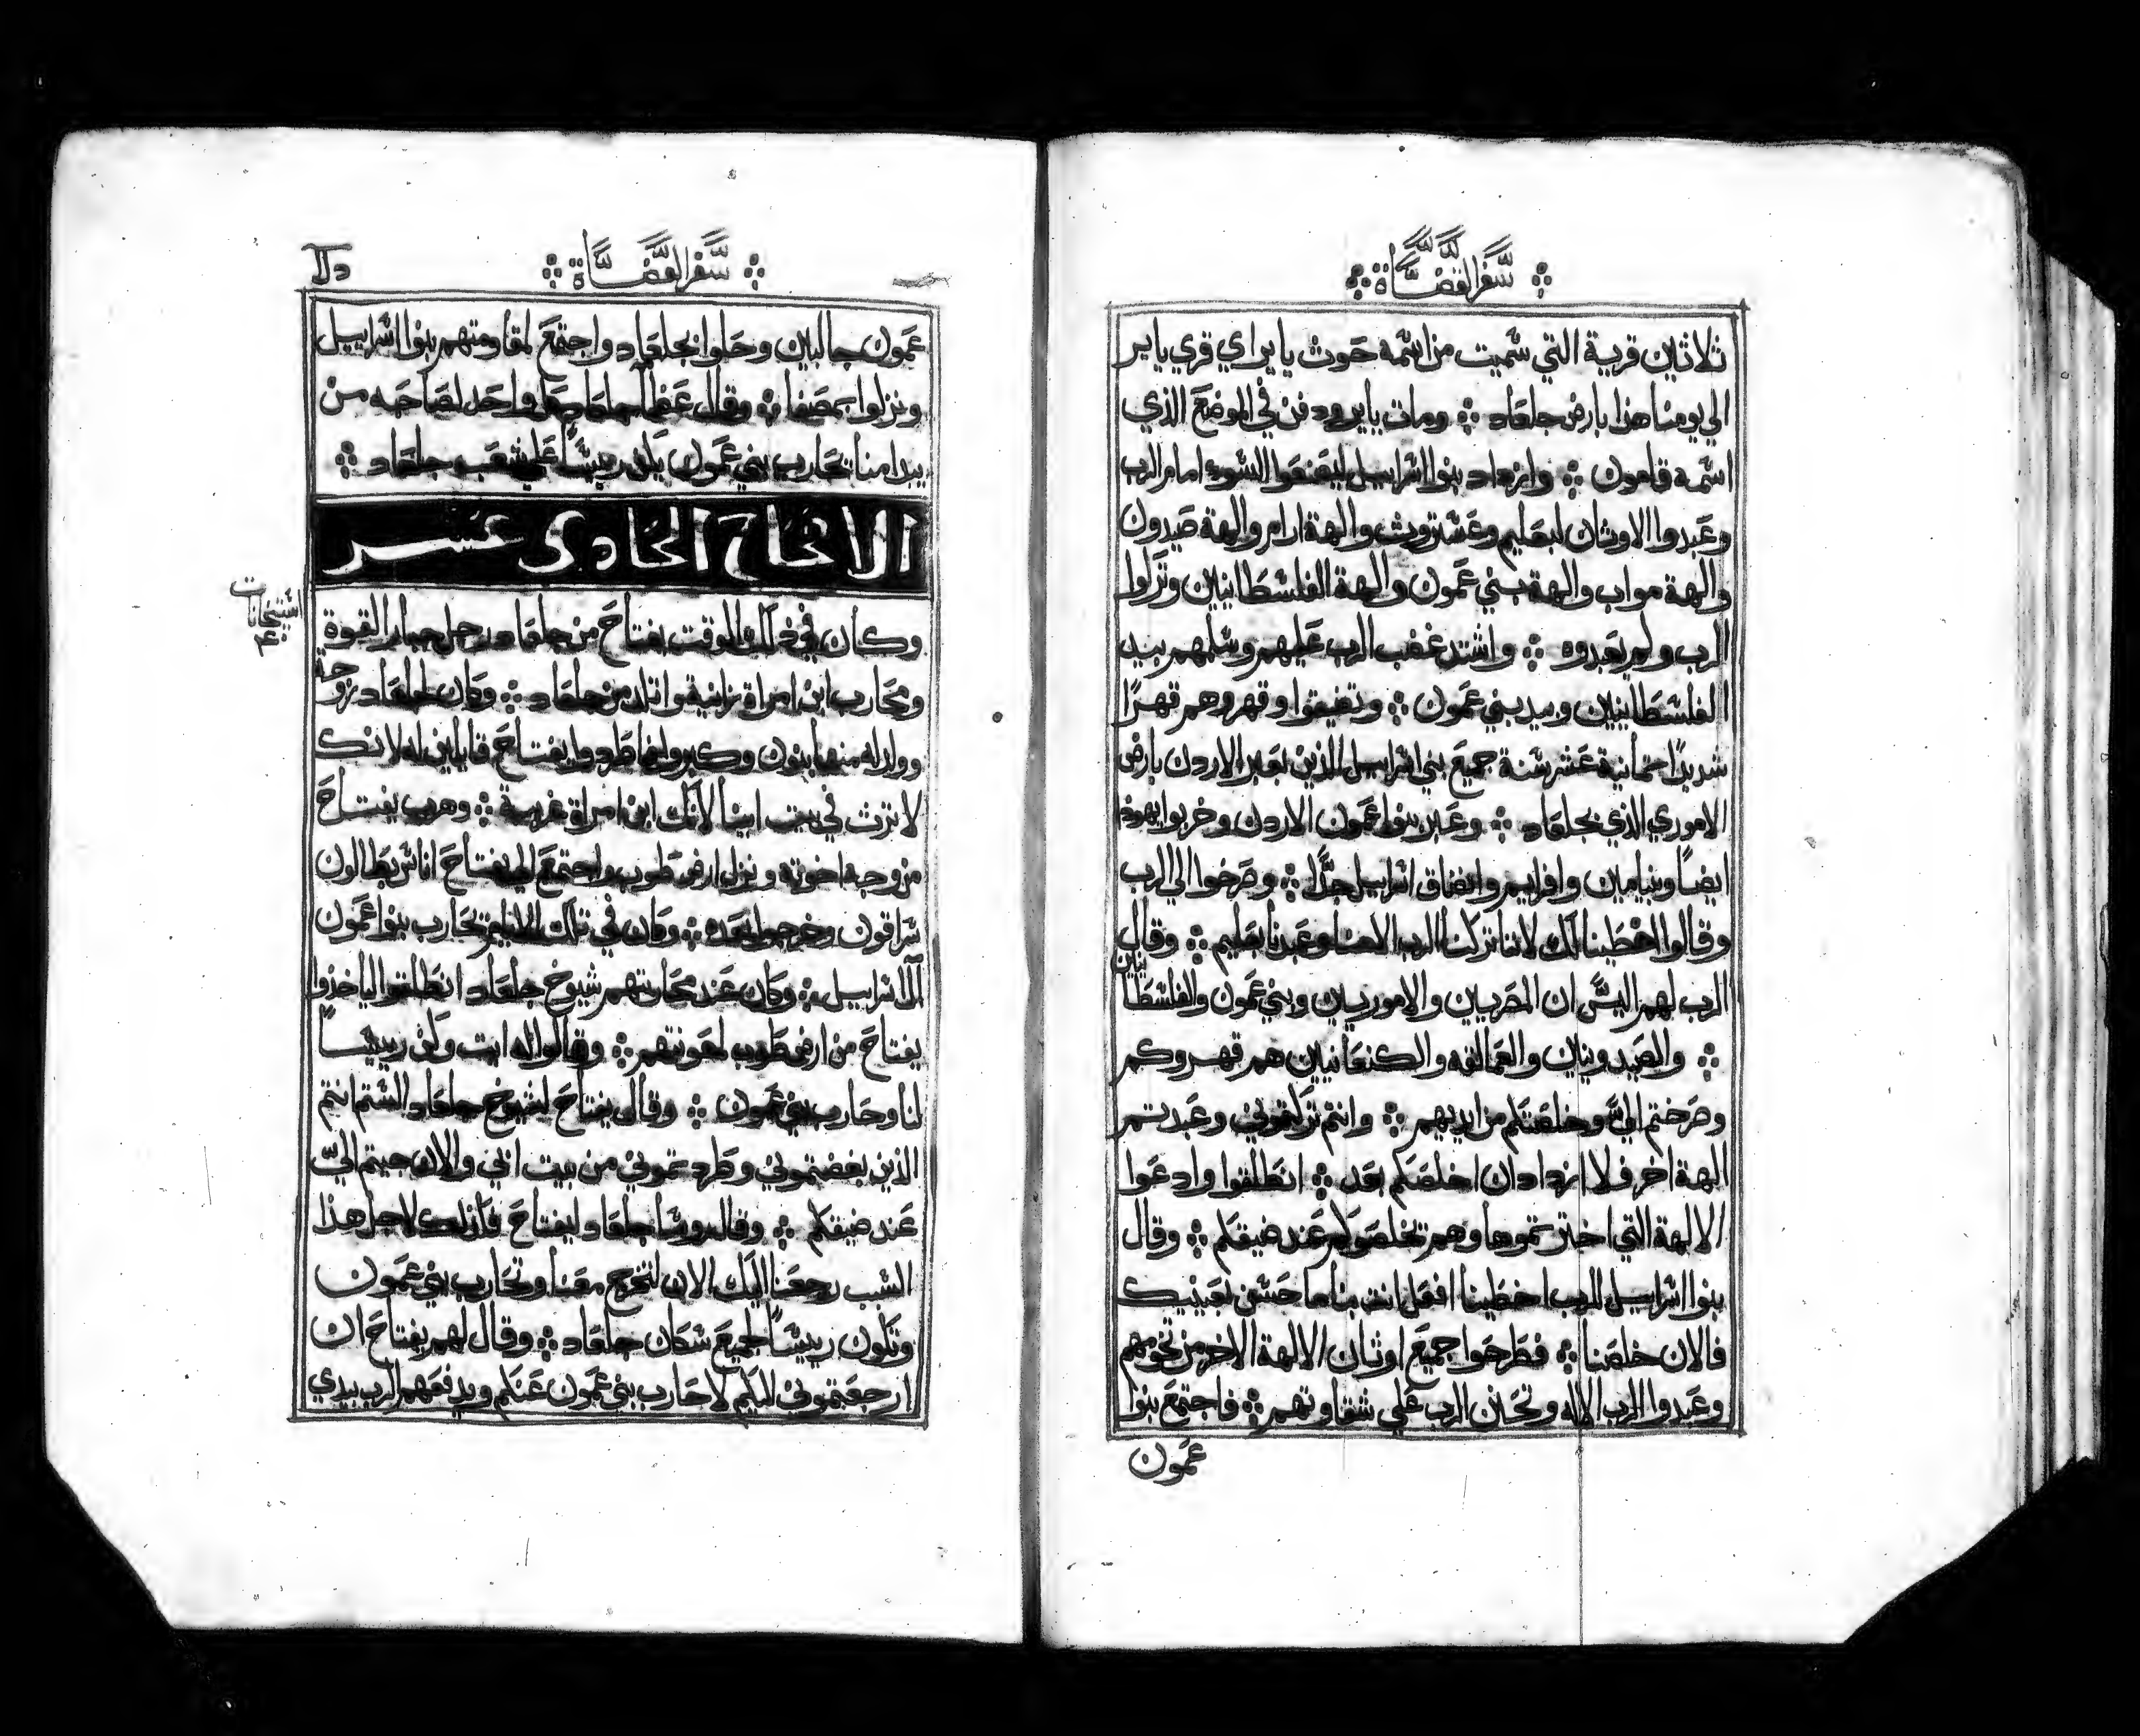 سفر القضاة
ثلاثين قرية التي سميت من اسمه حوث يايراي قري يايير
الي يومنا هذا بارض جلعاد ومات يايرودفن في الموضع الذي
اسمه قامون وازداد بنوا اسراييل ليصنعوا السوء امام الرب
وعبدوا الاوثان لبعليم وعشتروث والهة ارام والهة صيدون
والهة مواب والهة بني عمون والهة الفلسطانيين وتركوا
الرب ولم يعبدوه واشتد غضب الرب عليهم وسلمهم بيد
الفلسطانيين وبيد بني عمون وتضيقوا وقهروهم قهرًا
شديدًا ثمانية عشر سنة جميع بني اسراييل الذين بعبر الاردن بارض
الاموري الذي بجلعاد وعبر بنوا عمون الاردن وخربوا يهوذا
ايضًا وبنيامين وافرايم وانضاق اسراييل جدًا وصرخوا الي الرب
وقالوا اخطينا لك لاننا تركنا الرب الاهنا وعبدنا بعليم وقال
الرب لهم اليس ان المصريين والاموريين وبني عمون والفلسطا
نيين
والصيدونيين والعمالقه والكنعانيين هم قهروكم
وصرختم اليّ وخلصتكم من ايديهم وانتم تركتموني وعبدتم
الهة اخر فلا ازداد ان اخلصكم بعد انطلقوا وادعوا
الالهة التي اخترتموها وهم تخلصوكم عند ضيقكم وقال
بنوا اسراييل للرب اخطينا افعل انت بنا ما حسن بعينيك
فالان خلصنا فطرحوا جميع اوثان الالهة الاخر من تخومهم
وعبدوا الرب الاله وتحنن الرب علي شقاوتهم فاجتمع بنوا
عمون
سفر القضاة
عمون جالبين وحلوا بجلعاد واجتمع لمقاومتهم بنوا اسراييل
ونزلوا بمصفا وقال عظما جلعاد واحد لصاحبه من
يبدا منا تحارب بني عمون يكن رييسًا علي شعب جلعاد
الاصحاح الحادي عشر
اسبتحانات
٤٠
وكان في ذلك الوقت يفتاح من جلعاد رجل جبار القوة
ومحارب ابن امراة زانية واتلد من جلعاد وكان لجلعاد زوجة
وولد له منها بنون وكبروا فاطردوا يفتاح قايلين له لانك
لا ترث في بيت ابينا لانك ابن امراة غريبة وهرب يفتاح
من وجه اخوته ونزل ارض طوب واجتمع الي يفتاح اناس بطالون
سراقون وخرجوا بعده وكان في تلك الايام تحارب بنوا عمون
لاسراييل وكان عند محاربتهم شيوخ جلعاد انطلقوا لياخذوا
يفتاح من ارض طوب لعونتهم وقالوا له ايت وكن رييسًا
لنا وحارب بني عمون وقال يفتاح لشيوخ جلعاد الستم انتم
الذين بغضتموني وطردتموني من بيت ابي والان جيتم اليّ
عند ضيقكم وقال روسا جلعاد ليفتاح فانلك لاجل هذا
السبب رجعنا اليك الان لتخرج معنا وتحارب بني عمون
وتكون رييسًا لجميع سكان جلعاد وقال لهم يفتاح ان
ارجعتموني اليكم لاحارب بني عمون عنكم ويدفعهم الرب بيدي